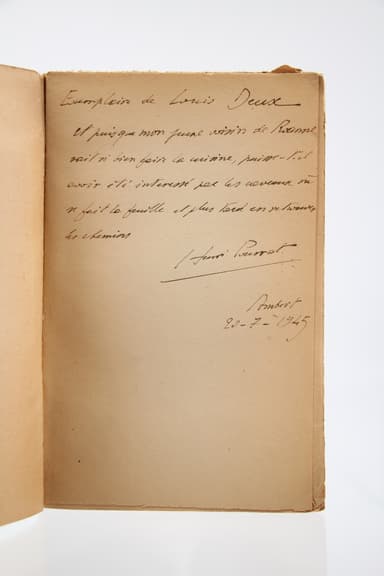 Exemplaire de Louis Deux
et puisque mon jeune voisin de Roanne
sait si bien faire la cuisine, puisse-t-il
avoir été interessé par les où
se fait la feuille et plus tard en retrouver
les chemins
Henri Pourrat
Ambert
20-7-1945